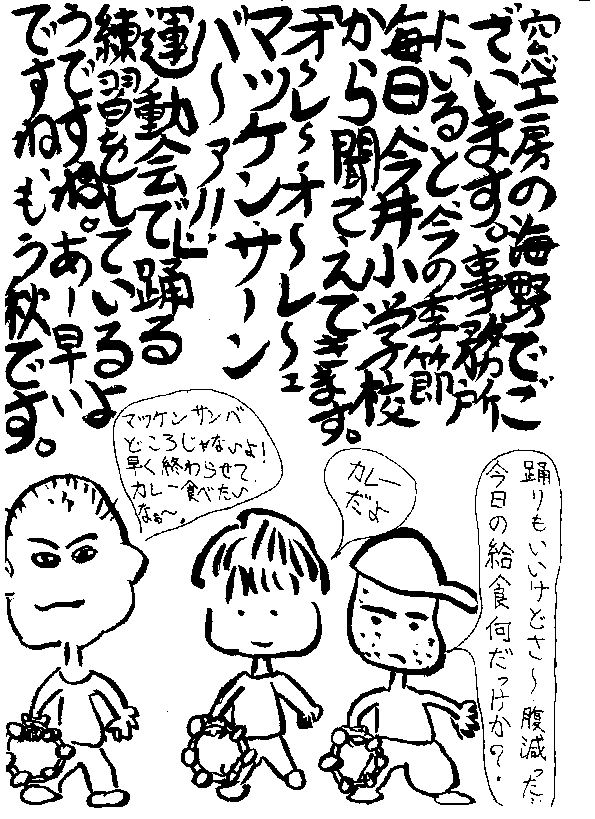 窓工房の海野でご
ざいます。事務所
にいると今の季節
毎日、今井小学校
から聞こえてきます。
「オ〜レ〜オ〜レ〜ェ
マツケンサーン
バ〜ァ!!」
運動会で踊る
練習をしているよ
うですね。あー早い
ですね、もう秋です。
踊りもいいけどさ〜腹減った
今日の給食何だっけか?
カレー
だよ
マツケンサンバ
どころじゃないよ!
早く終わらせて
カレー食べたい
なぁ〜。